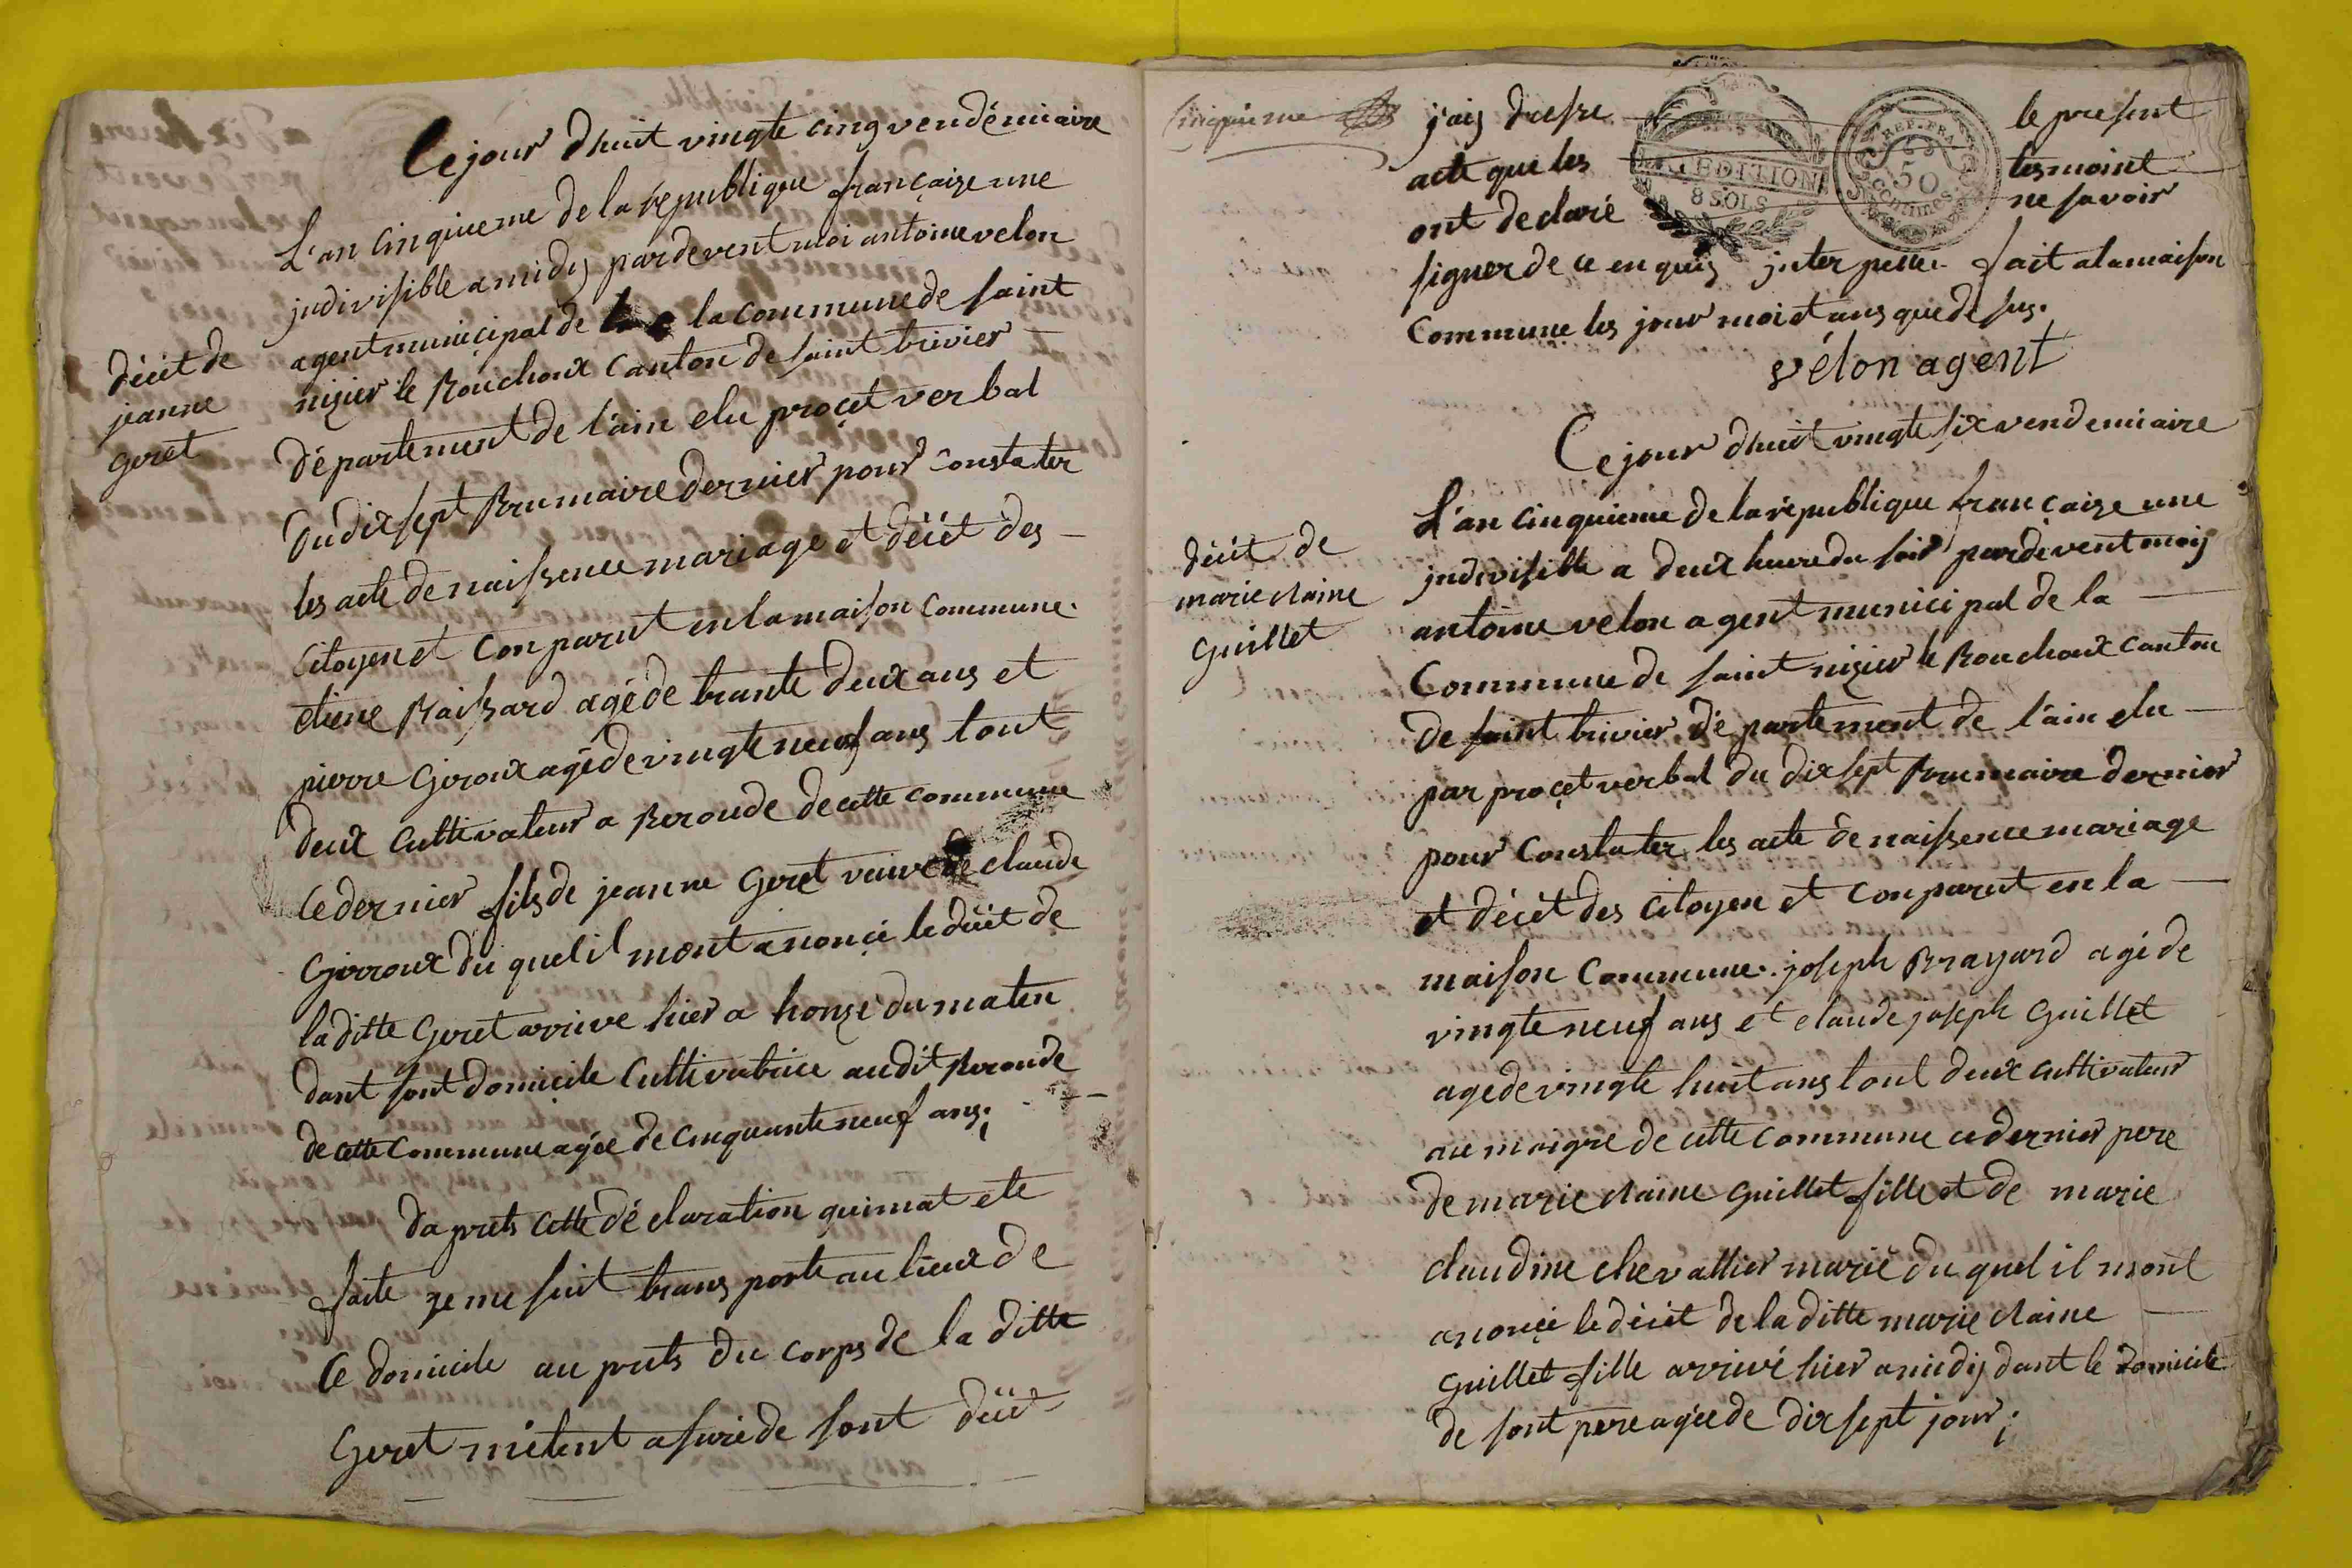 Cejour dhuit vingte cinq vendémiaire
L'an cinquieme de la republique française une
jndivisible a midy pardevent moi antoine velon
agent municipal de la commune de saint
nizier le Bouchoux canton de saint trivier
département de l'ain elu proçet verbal
du dix sept Brumaire dernier pour constater
les acte de naissence mariage et décét des
Citoyen et conparut en la maison commune.
etiene Raissard agé de trante deux ans et
pierre Giroux agé de vingte neuf ans tout
deux cultivateur a Beroude de cette commune
Ce dernier fils de jeanne Geret veuve de claude
Girroux du quel il mont anoncé le décét de
la ditte Geret arrivé hier a honze du maten
dant sont domicile Cultivatrice audit Beroude
de cette commune agée de cinquante neuf ans;
da prets cette déclaration qui mat ete
faite je me suit trans porte au lieux de
Ce domicile au prets du corps de la ditte
Geret m'étent asuré de sont décét
décét de
jeanne
Geret
Cinquieme
j'aij dresse le present
acte que les tesmoint
ont declaré ne savoir
signer de ce enquis jnterpelle. fait a la maison
Commune les jour moi et ans que de sus.
vélon agent
RÉP. FRA.
50
centimes
EDITION
8 SOLS
Ce jour dhuit vingte six vendemiaire
L'an cinquieme de la république française une
jndivisible a deux heure du soir pardevent moij
antoine velon agent municipal de la
Commune de saint nizier le Bouchoux canton
de saint trivier département de l'ain elu
par proçet verbal du dix sept Brumaire dernier
pour constater les acte de naissence mariage
et décét des citoyen et conparut en la
maison commune. joseph Brayard agé de
vingte neuf ans et claude joseph Guillet
age de vingte huit ans tout deux cultivateur
au maigre de cette commune ce dernier pere
de marie claine Guillet fille et de marie
claudine chevallier marié du quel il mont
anoncé le décét de la ditte marie claine
Guillet fille arrivé hier a midij dant le domicile
de sont pere agée de dix sept jour;
décét de
marie claine
Guillet